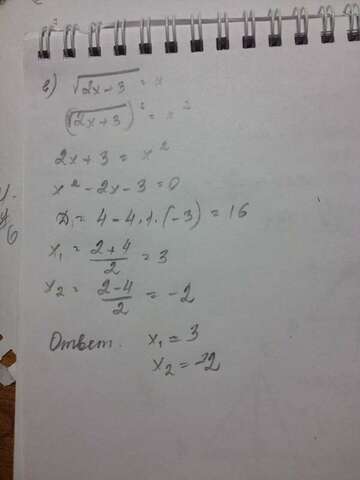 в) √2x+3 = x
(√2x+3)² = x²
2x+3 = x²
x²-2x-3=0
D₁=4-4.1.(-3)=16
x₁ = 2+4/2 = 3
x₂ = 2-4/2 = -2
Ответ. x₁ = 3
x₂ = -2